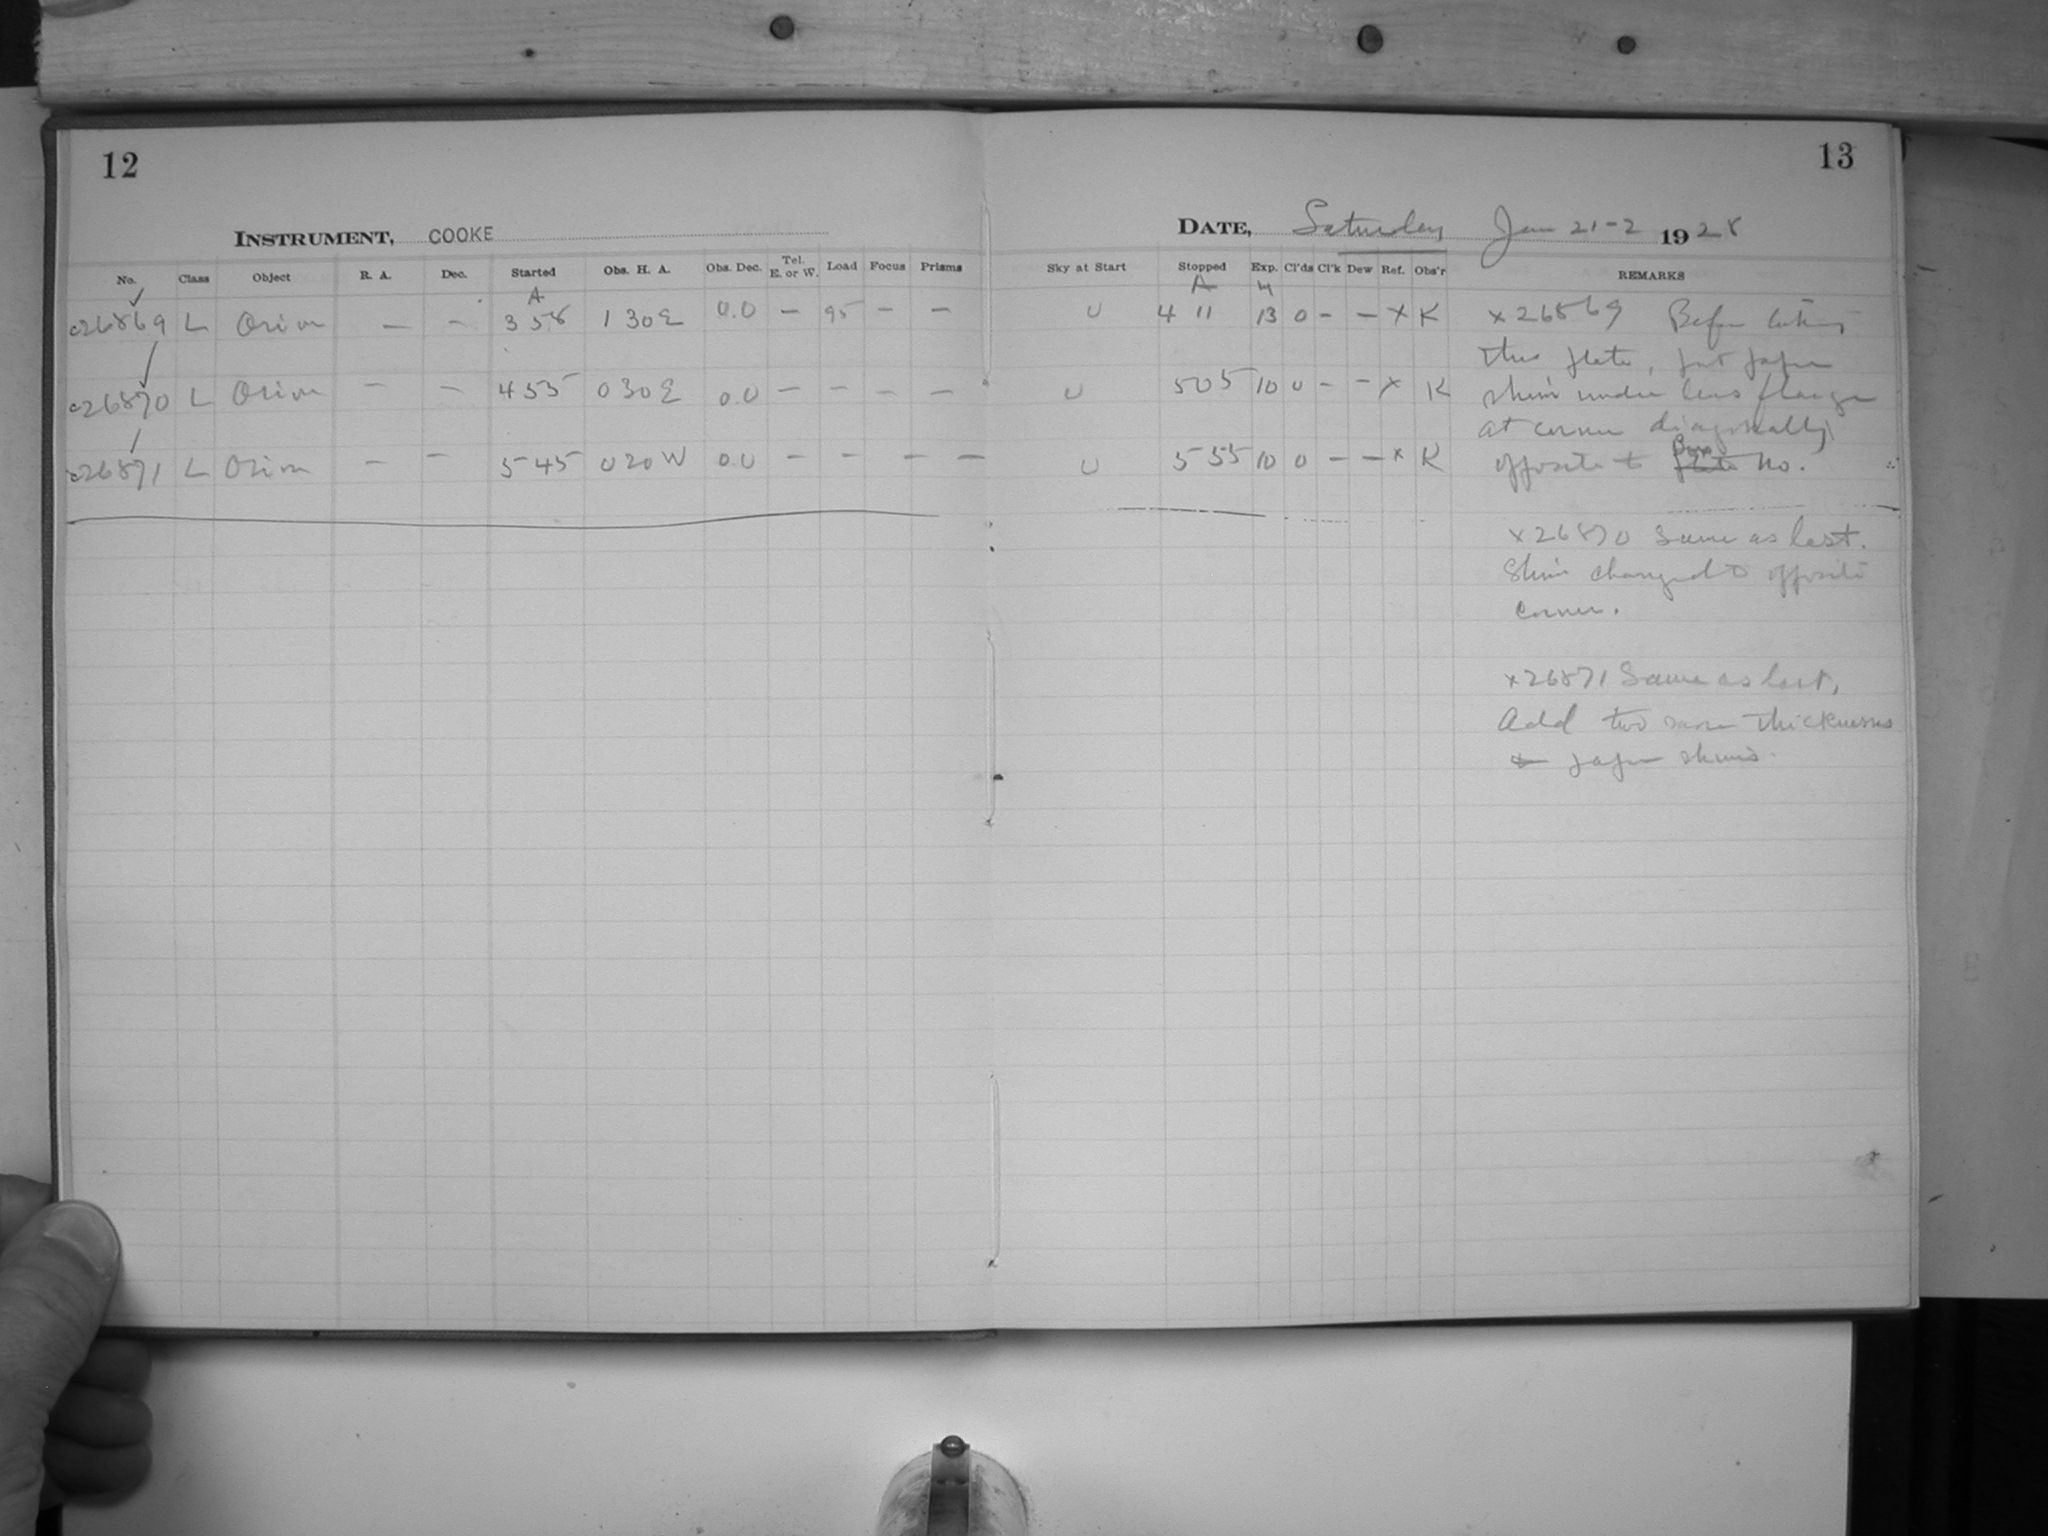 12
13
INSTRUMENT, COOKE
DATE, Saturday Jan 21-2 1928
No. Class Object R. A. Dec. Started Obs. H. A. Obs. Dec. Tel. E. or W. Load Focus Prisms Sky at Start Stopped Exp. Cl'ds Cl'k Dew Ref. Obs'r REMARKS
A A
26869 L Orion — — 3 58 1 30 E 0.0 — 95 — — 0 4 11 13 0 - — x K x26869 Before taking
this plate, put paper
26870 L Orion — — 4 55 0 30 E 0.0 — — — — 0 5 05 10 0 - - x K shim under lens flange
at corner diagonally
26871 L Orion — — 5 45 0 20 W 0.0 — — — — 0 5 55 10 0 — — x K opposite to Box No.
x26870 Same as last.
Shim changed to opposite
corner.
x26871 Same as last,
Add two more thicknesses
paper shims.